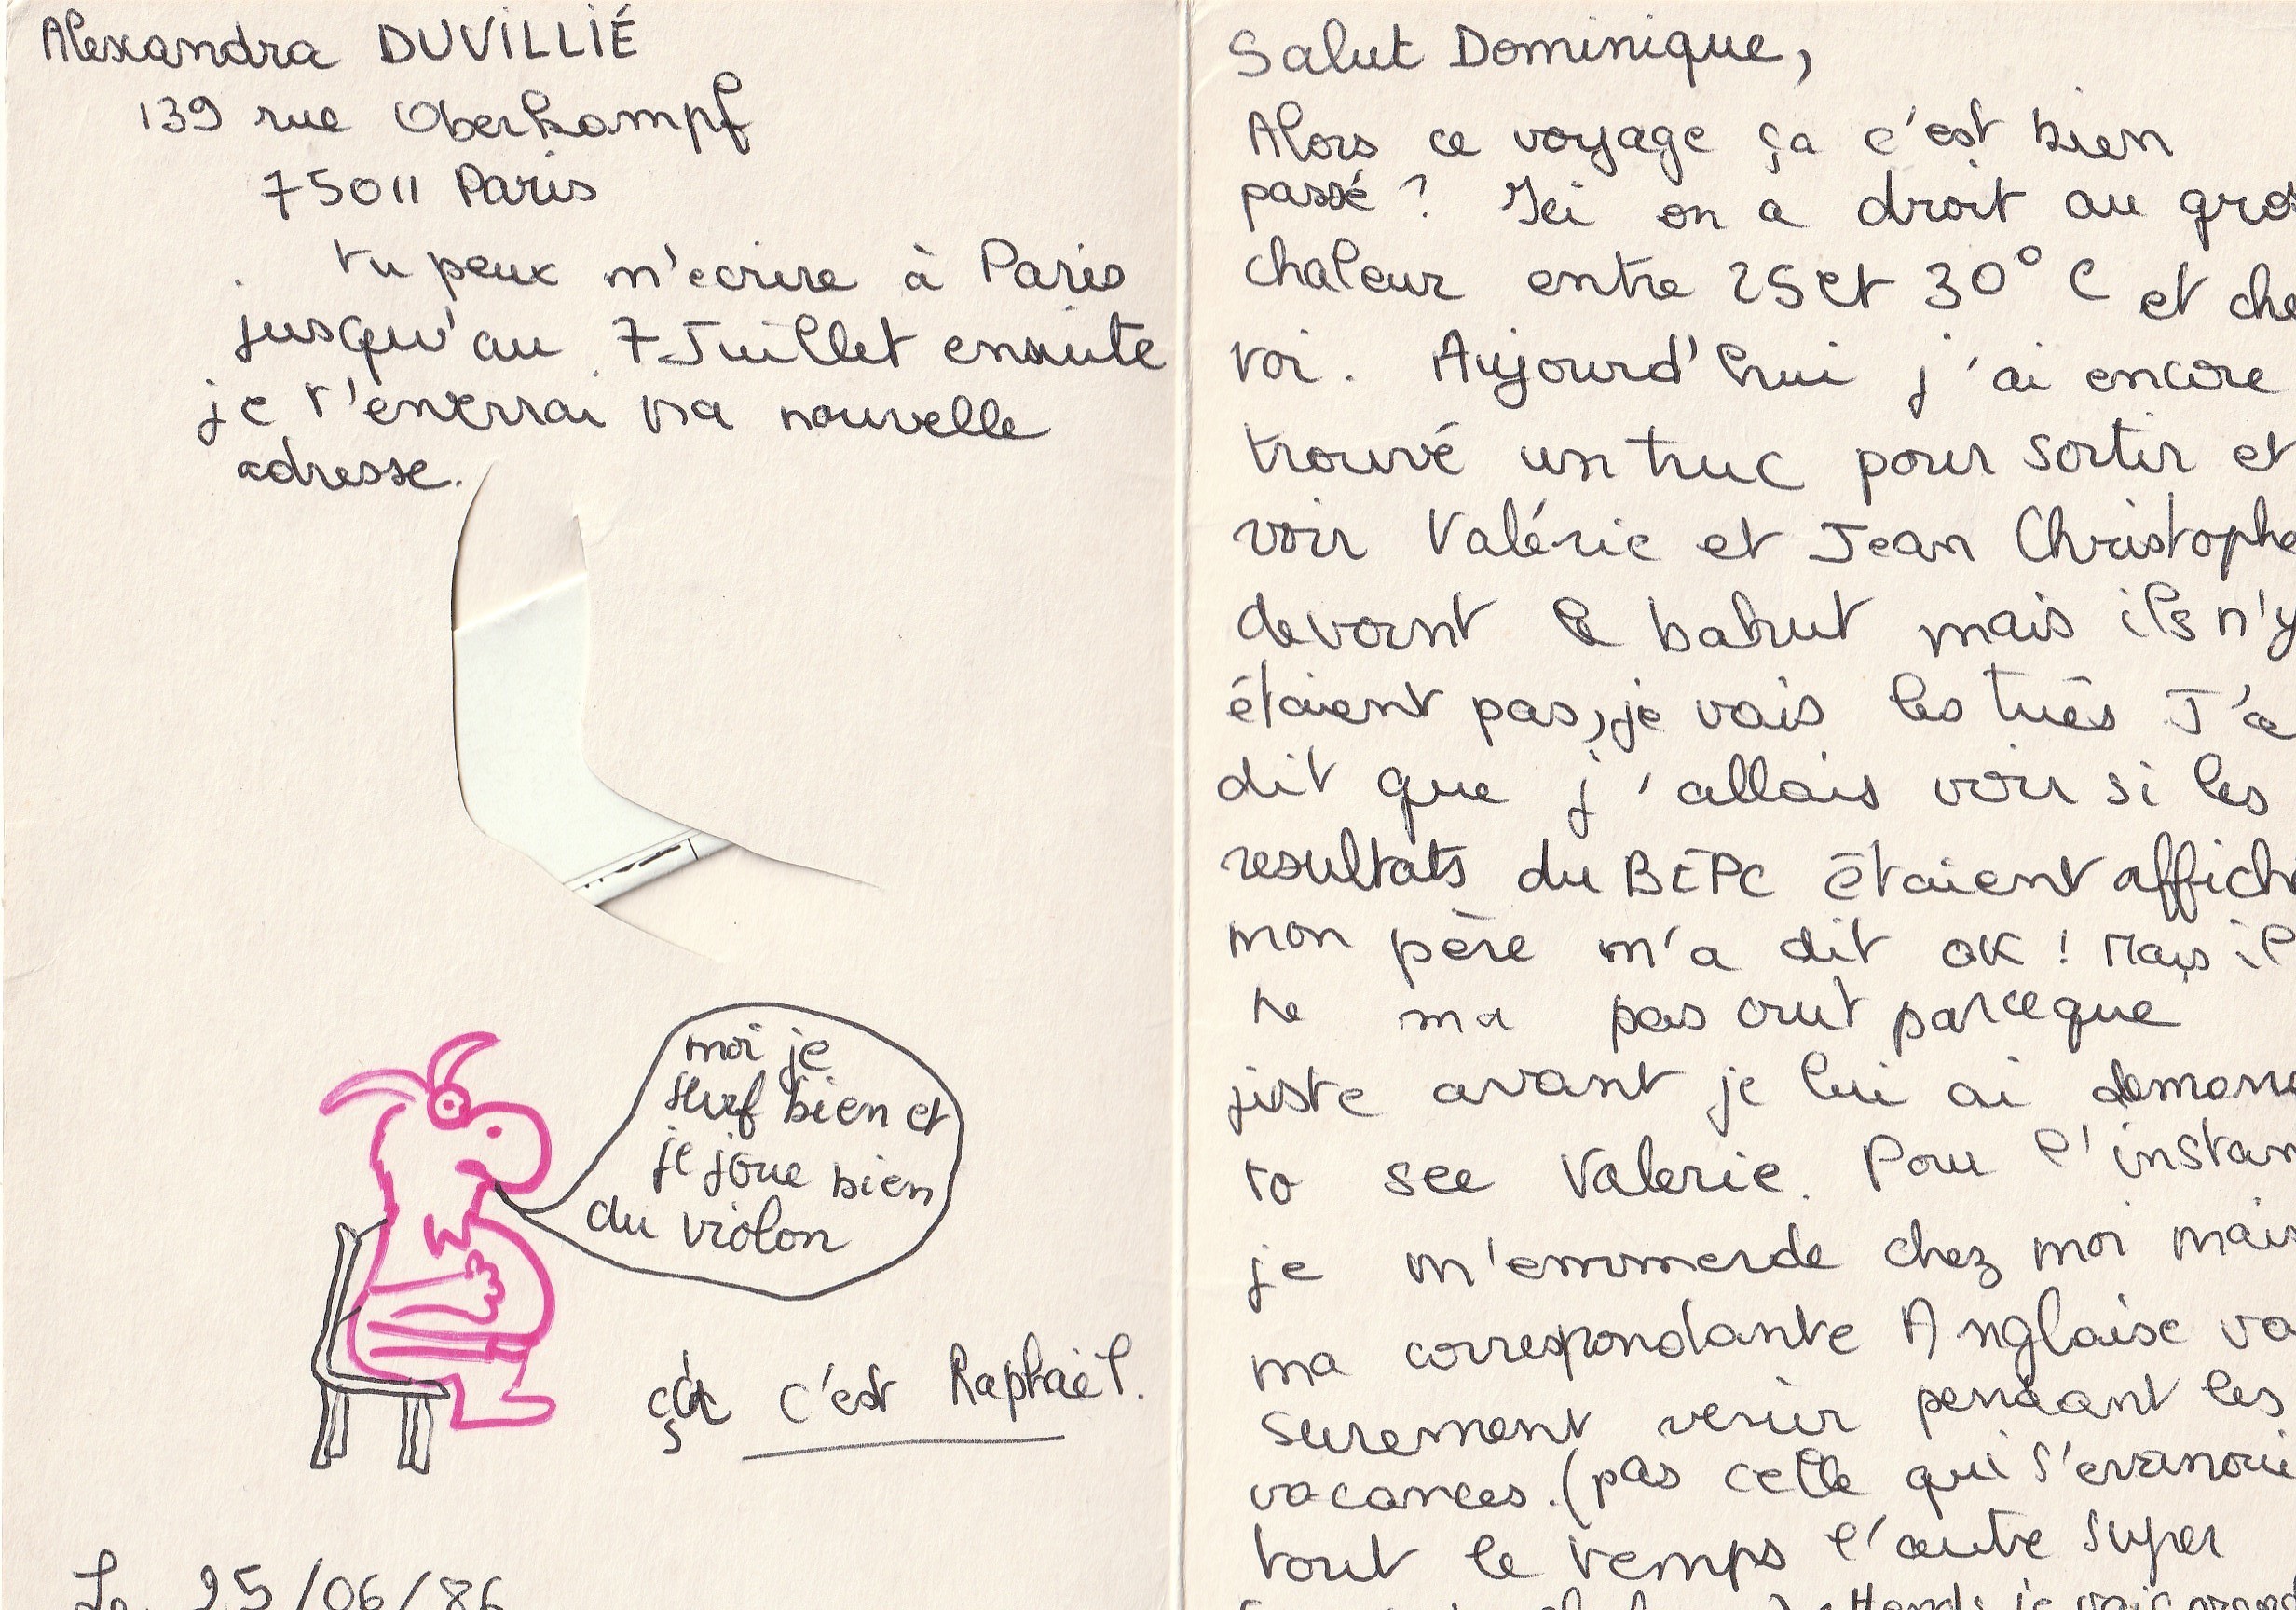 Alexandra DUVILLIÉ
139 rue Oberkampf
75011 Paris
tu peux m'ecrire à Paris
jusqu'au 7 Juillet ensuite
je t'enverrai ma nouvelle
adresse.
moi je
surf bien et
je joue bien
du violon
ça c'est Raphaël.
Le 25/06/86
Salut Dominique,
Alors ce voyage ça c'est bien
passé ? Ici on a droit au gros
chaleur entre 25 et 30° C et che
toi. Aujourd'hui j'ai encore
trouvé un truc pour sortir et
voir Valérie et Jean Christophe
devant le bahut mais ils n'y
étaient pas, je vais les tués J'a
dit que j'allais voir si les
resultats du BEPC étaient affich
mon père m'a dit OK ! Mais il
ne ma pas crut parceque
juste avant je lui ai deman
to see Valerie. Pour l'instan
je m'emmerde chez moi mais
ma correspondante Anglaise va
surement venir pendant les
vacances. (pas celle qui s'evanoui
tout le temps l'autre super